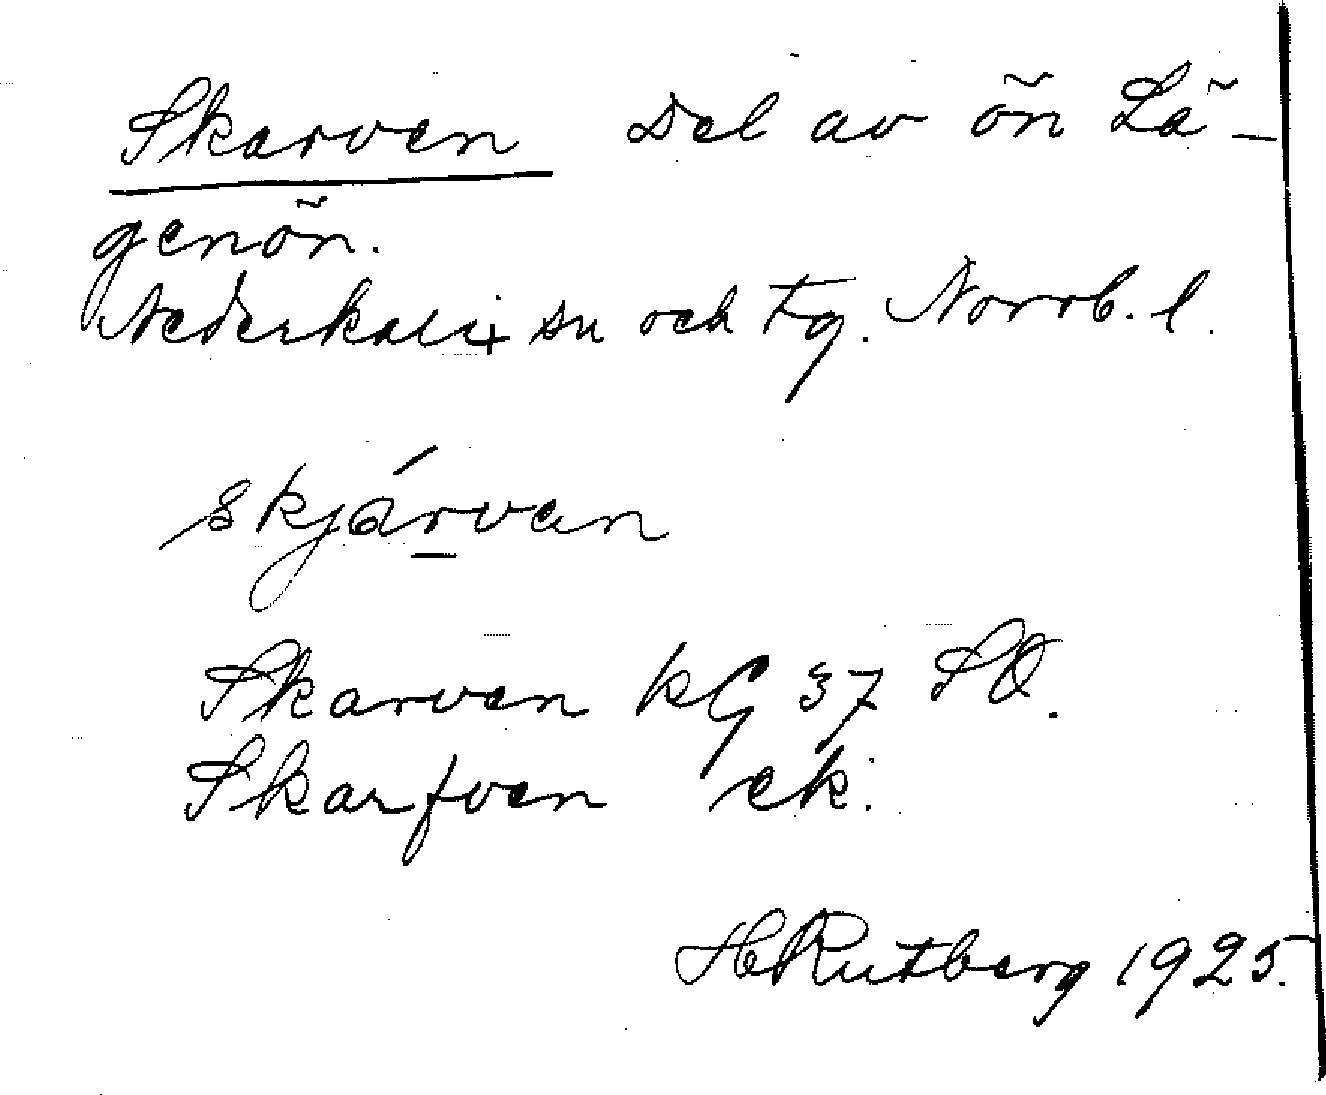 Skarven Del av ön Lä-
genön.
Nederkalix sn och tg. Norrb. l.
skjárvan
Skarven kG 37 SO.
Skarfven ek.
H Rutberg 1925.